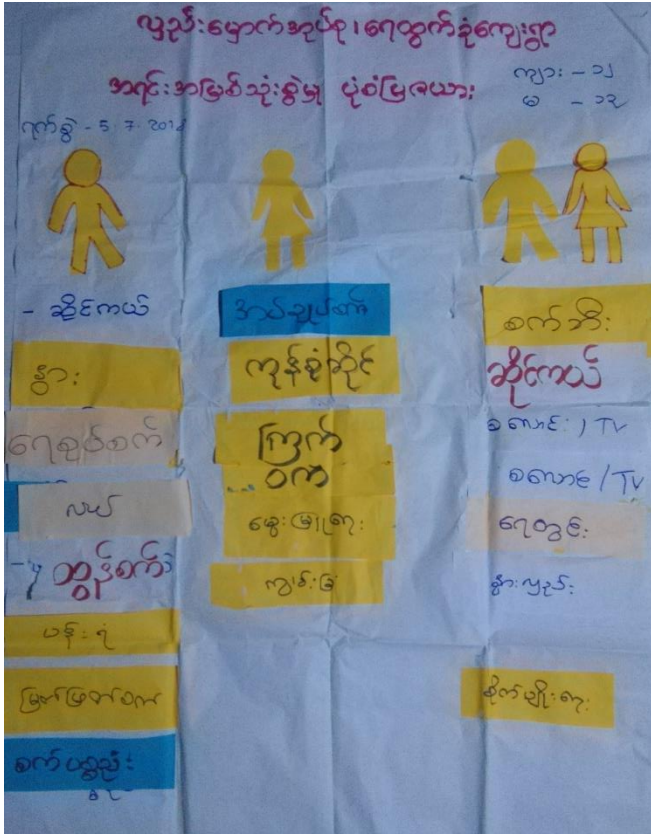 လှည်းမှောက်အုပ်စု၊ရေထွက်ခုံကျေးရွာ
အရင်းအမြစ်သုံးစွဲမှု ပုံစံပြဇယား
ကျား - ၁၂
မ - ၁၃
ရက်စွဲ - 5.7.201
- ဆိုင်ကယ်
နွား
ရေစုပ်စက်
လယ်
ထွန်စက်
ပန်းရံ
မြက်ဖြတ်စက်
စက်ပစ္စည်း
အပ်ချုပ်စက်
ကုန်စုံဆိုင်
ကြက်
ဝက်
မွေးမြူရေး
ကျွန်းခြံ
စက်ဘီး
ဆိုင်ကယ်
စလောင်း / TV
စလောင်း / TV
ရေတွင်း
နွားလှည်း
စိုက်ပျိုးရေး